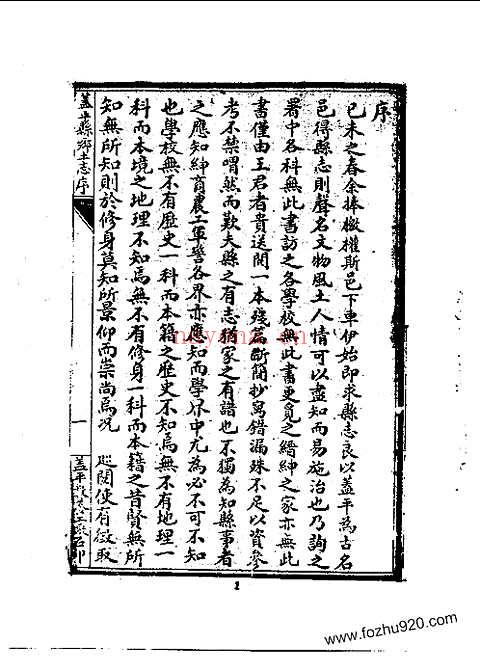 序
己未之春余捧檄權斯邑下車伊始即求縣志良以蓋平為古名
邑得縣志則聲名文物風土人情可以盡知而易施治也乃詢之
署中各科無此書訪之各學校無此書更覓之縉紳之家亦無此
書僅由王君者貴送閱一本殘篇斷簡抄寫錯漏殊不足以資參
考不禁喟然而歎夫縣之有志猶家之有譜也不獨為知縣事者
之應知紳商農工軍警各界亦應知而學界中尤為必不可不知
也學校無不有歷史一科而本籍之歷史不知焉無不有地理一
科而本境之地理不知焉無不有修身一科而本籍之昔賢無所
知無所知則於修身莫知所景仰而崇尚焉况 巡閱使有徵取
蓋平縣鄉土志序
一
蓋平
石印
1
nayona.cn
www.fozhu920.com